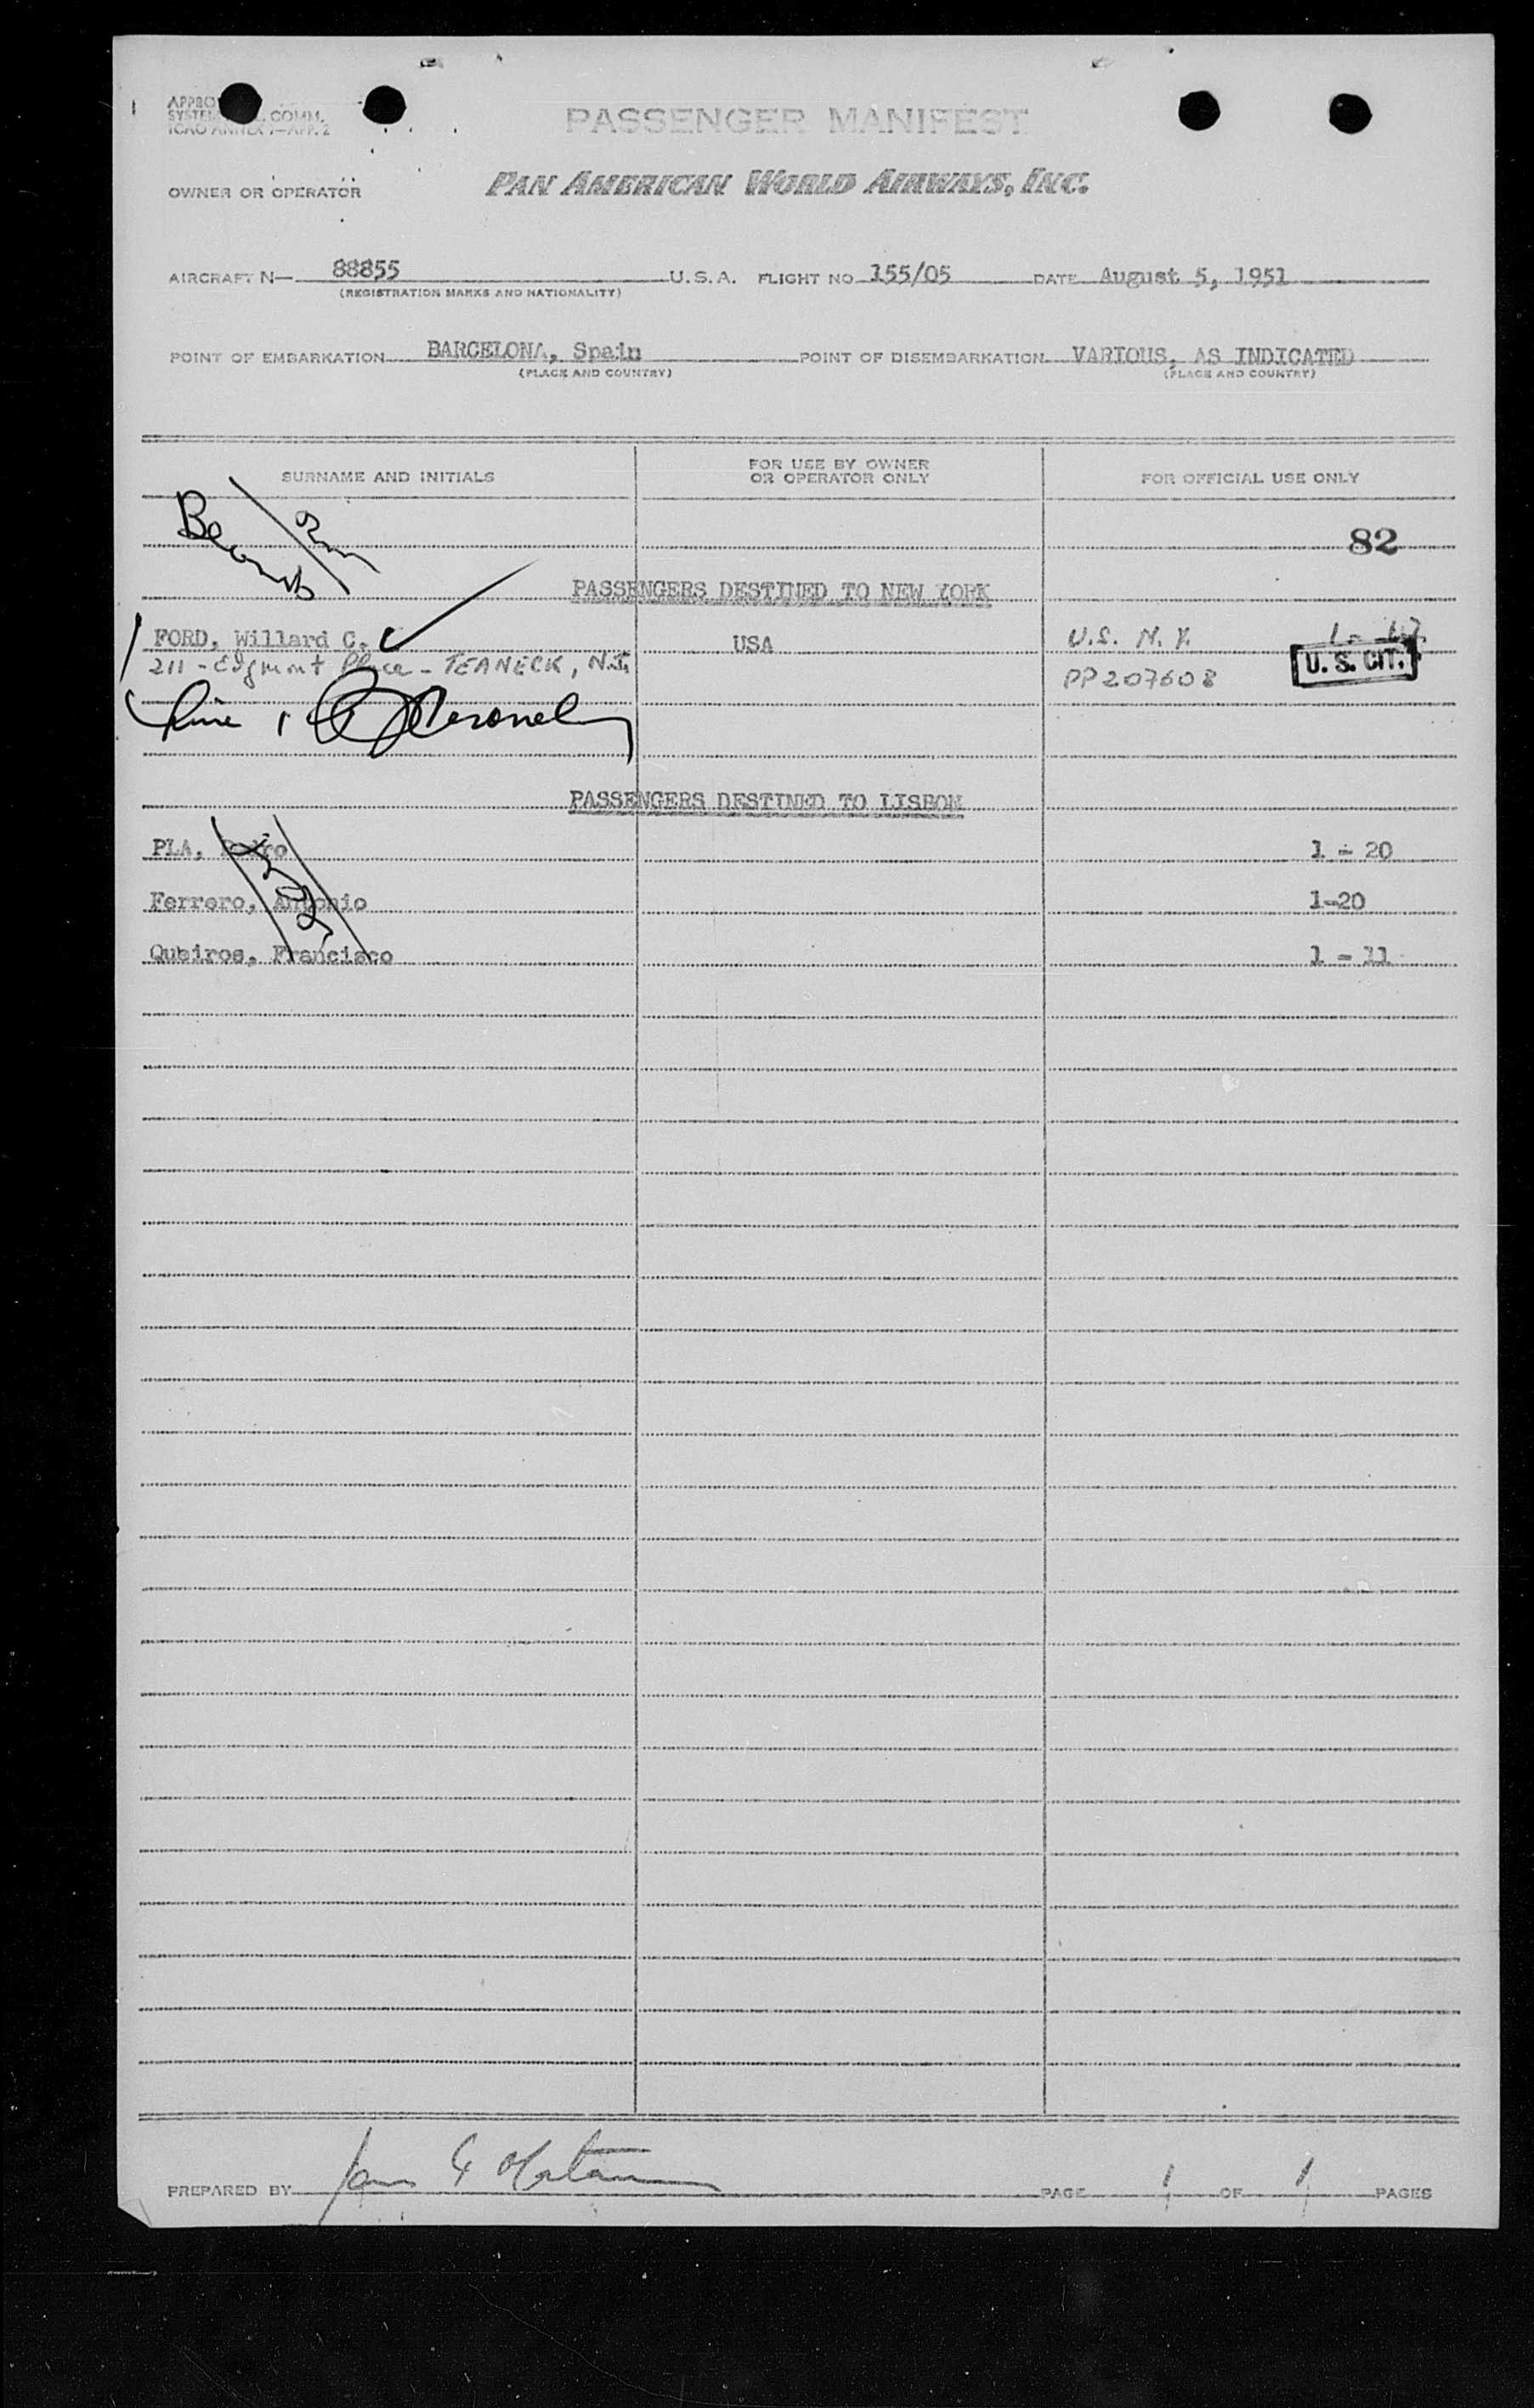 PASSENGER MANIFEST
COMM.
ICAO ANNEX 9-APP. 2
OWNER OR OPERATOR PAN AMERICAN WORLD AIRWAYS, INC.
AIRCRAFT N— 88855 U.S.A. FLIGHT NO 155/05 DATE August 5, 1951
(REGISTRATION MARKS AND NATIONALITY)
POINT OF EMBARKATION BARCELONA, Spain POINT OF DISEMBARKATION VARIOUS, AS INDICATED
(PLACE AND COUNTRY) (PLACE AND COUNTRY)
SURNAME AND INITIALS FOR USE BY OWNER OR OPERATOR ONLY FOR OFFICIAL USE ONLY
82
PASSENGERS DESTINED TO NEW YORK
FORD, Willard C. USA U.S. N.Y.
211 - Edgmont Place - TEANECK, N.J. U. S. CIT.
PP207608
PASSENGERS DESTINED TO LISBON
PLA, Pedro 1 - 20
Ferrero, Antonio 1-20
Queiros, Francisco 1 - 11
PREPARED BY PAGE 1 OF 1 PAGES